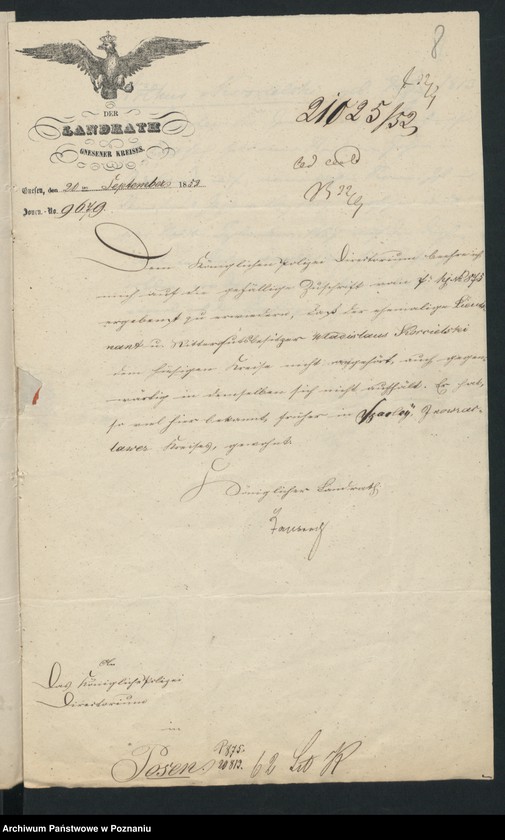 8
21025/52
DER
LANDRATH
GNESENER KREISES.
Gnesen, den 20ten September 1852
Journ.-No. 9679.
Dem Königlichen Polizei Directorium beehre ich
mich auf die gefällige Zuschrift vom
ergebenst zu erwiedern, daß der ehemalige Lieut-
nant u. Rittergutsbesitzer Wladislaus Koscielski
dem hiesigen Kreise nicht angehört, auch gegen-
wärtig in demselben sich nicht aufhält. Er hat,
so viel hier bekannt, früher in Inowrac-
lawer Kreises, gewohnt.
Königlicher Landrath
An
Das Königliche Polizei
Directorium
in
Posen
P 875.
20813.
62 Lit K
Archiwum Państwowe w Poznaniu